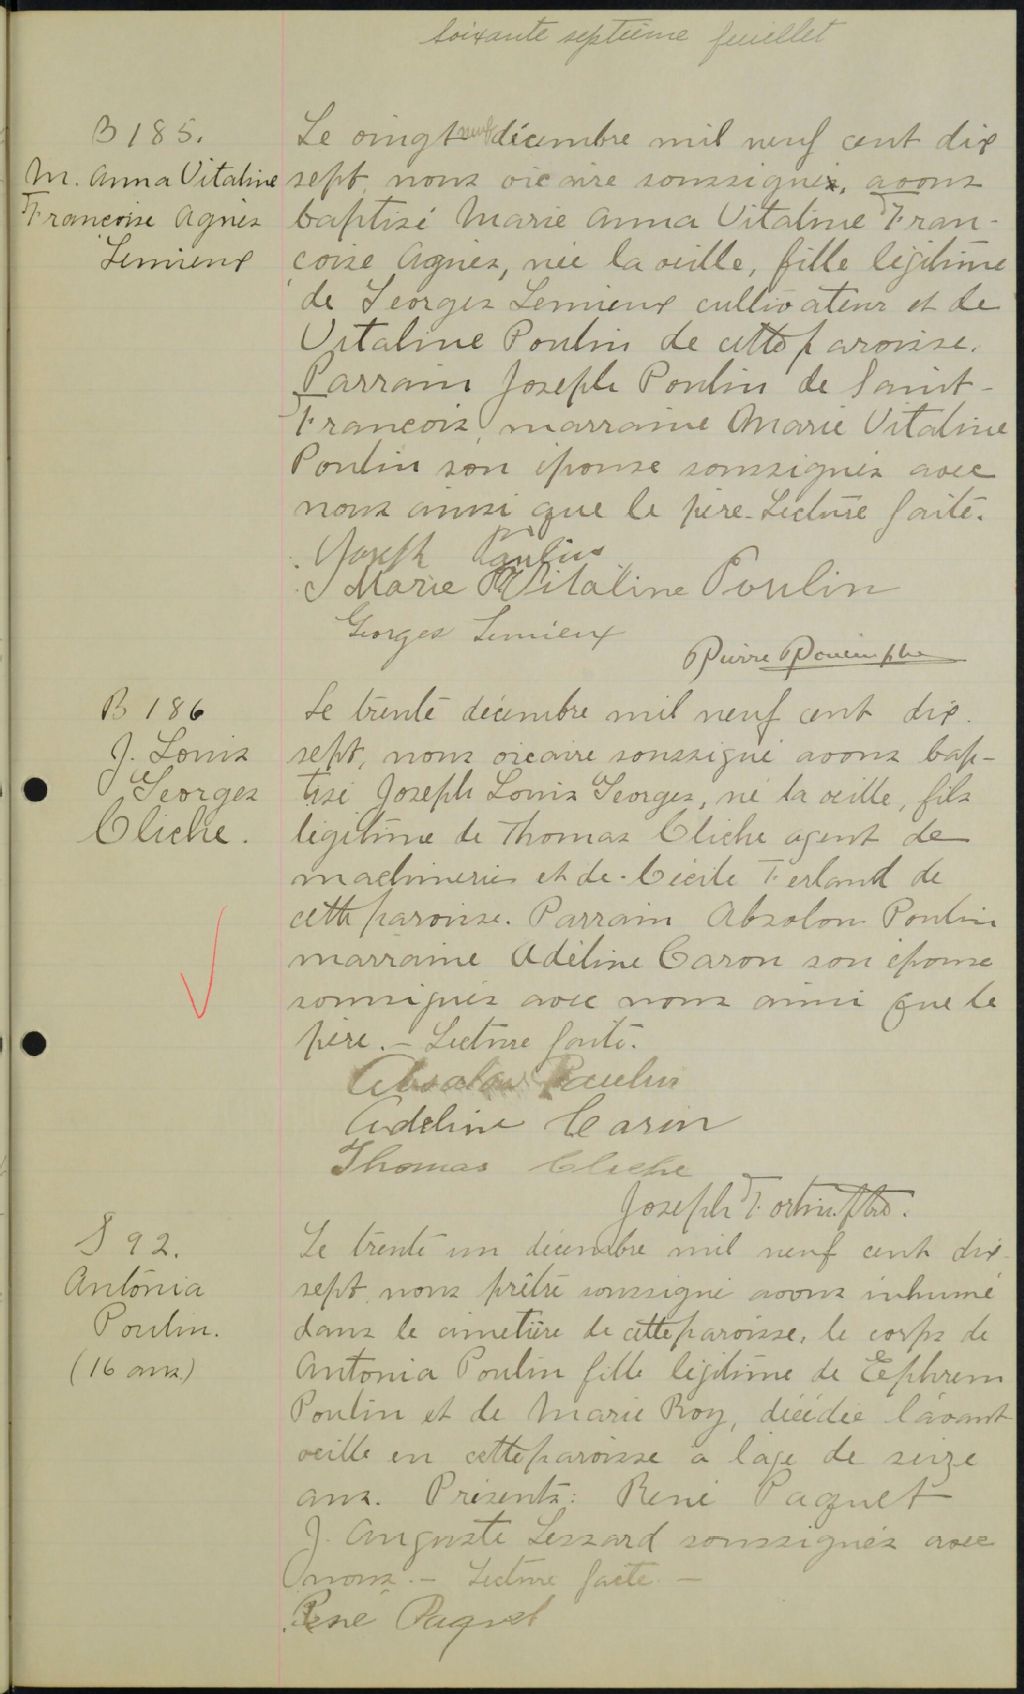 soixante septième feuillet
B 185.
M. Anna Vitaline
Françoise Agnès
Lemieux
Le vingt neuf décembre mil neuf cent dix
sept, nous vicaire soussigné, avons
baptisé Marie Anna Vitaline Fran-
çoise Agnès, née la veille, fille légitime
de Georges Lemieux cultivateur et de
Vitaline Poulin de cette paroisse.
Parrain Joseph Poulin de Saint-
François, marraine Marie Vitaline
Poulin son épouse soussignés avec
nous ainsi que le père. Lecture faite.
Joseph Poulin
Marie Vitaline Poulin
Georges Lemieux
Pierre
B 186
J. Louis
Georges
Cliche.
Le trente décembre mil neuf cent dix
sept, nous vicaire soussigné avons bap-
tisé Joseph Louis Georges, né la veille, fils
légitime de Thomas Cliche agent de
machineries et de Cécile Ferland de
cette paroisse. Parrain Absolon Poulin
marraine Adéline Caron son épouse
soussignés avec nous ainsi que le
père. - Lecture faite.
Absalon Poulin
Adeline Carin
Thomas Cliche
Joseph Fortin Ptre.
S 92.
Antonia
Poulin.
(16 ans)
Le trente un décembre mil neuf cent dix
sept nous prêtre soussigné avons inhumé
dans le cimetière de cette paroisse, le corps de
Antonia Poulin fille légitime de Eephrem
Poulin et de Marie Roy, décédée l'avant
veille en cette paroisse a l'age de seize
ans. Présents: René Paquet
J. Auguste Lessard soussignés avec
nous. - Lecture faite. -
René Paquet